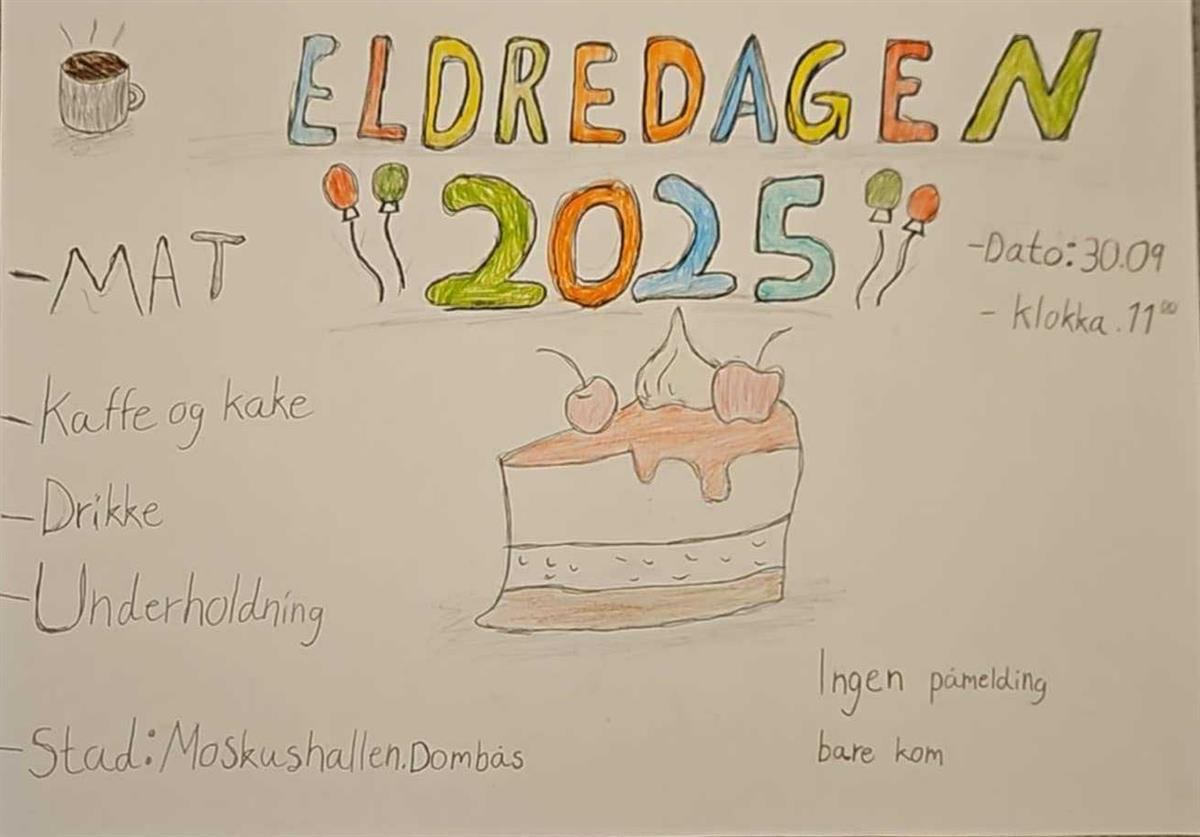 ELDREDAGEN
2025
-MAT
-Dato: 30.09
- Klokka. 11⁰⁰
-Kaffe og kake
-Drikke
-Underholdning
Ingen påmelding
bare kom
-Stad: Moskushallen. Dombås